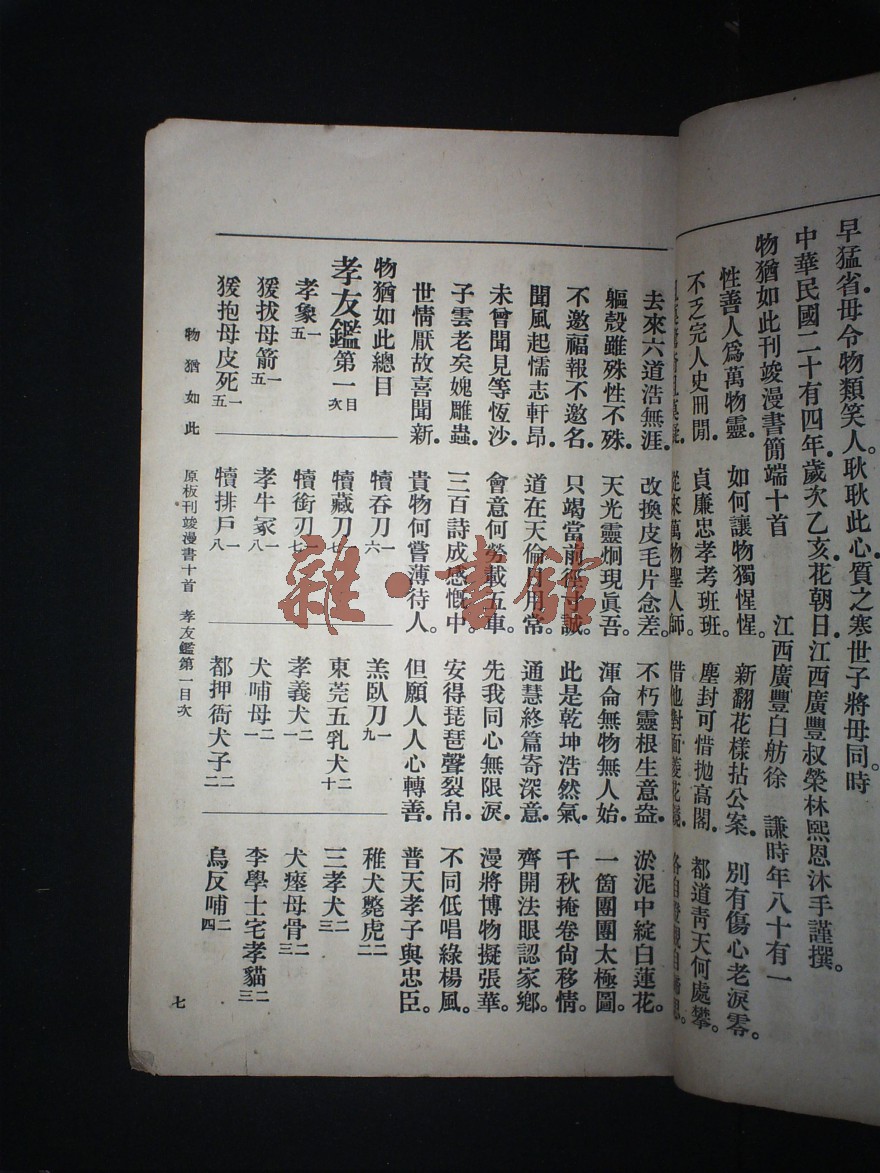 早猛省毋令物類笑人耿耿此心質之寒世子將毋同時
中華民國二十有四年歲次乙亥花朝日江西廣豐叔榮林熙恩沐手謹撰。
物猶如此刊竣漫書簡端十首 江西廣豐白舫徐 謙時年八十有一
性善人爲萬物靈。 如何讓物獨惺惺。 新翻花樣拈公案。 別有傷心老淚零。
不乏完人史冊閒。 貞廉忠孝考班班。 塵封可惜拋高閣。 都道靑天何處攀。
從來萬物聖人師。 借他對面菱花
去來六道浩無涯。 改換皮毛片念差。 不朽靈根生意盎。 淤泥中綻白蓮花。
軀殼雖殊性不殊。 天光靈炯現眞吾。 渾侖無物無人始。 一箇團團太極圖。
不邀福報不邀名。 只竭當前徑寸誠。 此是乾坤浩然氣。 千秋掩卷尙移情。
聞風起懦志軒昂。 道在天倫日用常。 通慧終篇寄深意。 齊開法眼認家鄉。
未曾聞見等恆沙。 會意何勞載五車。 先我同心無限淚。 漫將博物擬張華。
子雲老矣媿雕蟲。 三百詩成感慨中。 安得琵琶聲裂帛。 不同低唱綠楊風。
世情厭故喜聞新。 貴物何嘗薄待人。 但願人人心轉善。 普天孝子與忠臣。
物猶如此總目
孝友鑑第一目次
孝象一五 犢吞刀一六 羔臥刀一九 稚犬斃虎二二
猨拔母箭一五 犢藏刀一七 東莞五乳犬二十 三孝犬二三
猨抱母皮死一五 犢銜刃一七 孝義犬二一 犬瘞母骨二三
孝牛冢一八 犬哺母二一 李學士宅孝貓二三
犢排戶一八 都押衙犬子二二 烏反哺二四
物猶如此 原板刊竣漫書十首 孝友鑑第一目次 七
雜·書館